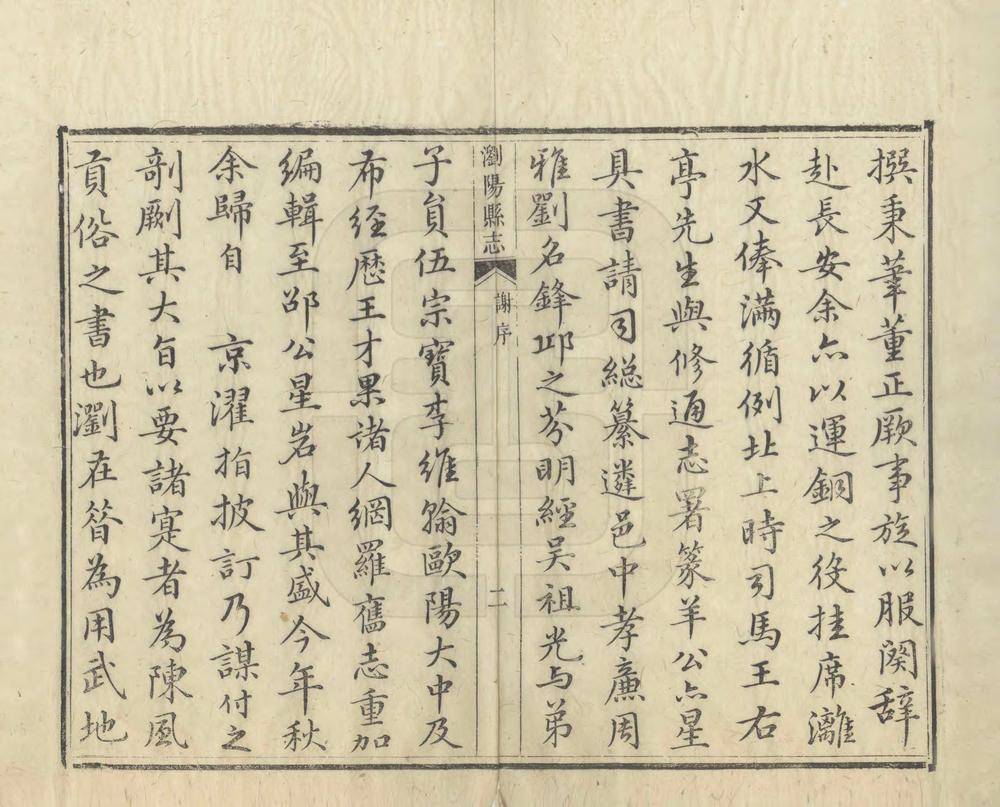 撰秉筆董正厥事旋以服闋辭
赴長安余亦以運銅之役挂席灕
水又俸滿循例北上時司馬王右
亭先生與修通志署篆羊公亦星
具書請司総纂遴邑中孝廉周
雅劉名鋒邱之芬明經吳祖光与弟
瀏陽縣志
謝序
二
子貟伍宗寶李維翰歐陽大中及
布經歷王才果諸人網羅舊志重加
編輯至邵公星岩與其盛今年秋
余歸自 京濯指披訂乃謀付之
剞劂其大旨以要諸寔者為陳風
貢俗之書也瀏在昝為用武地